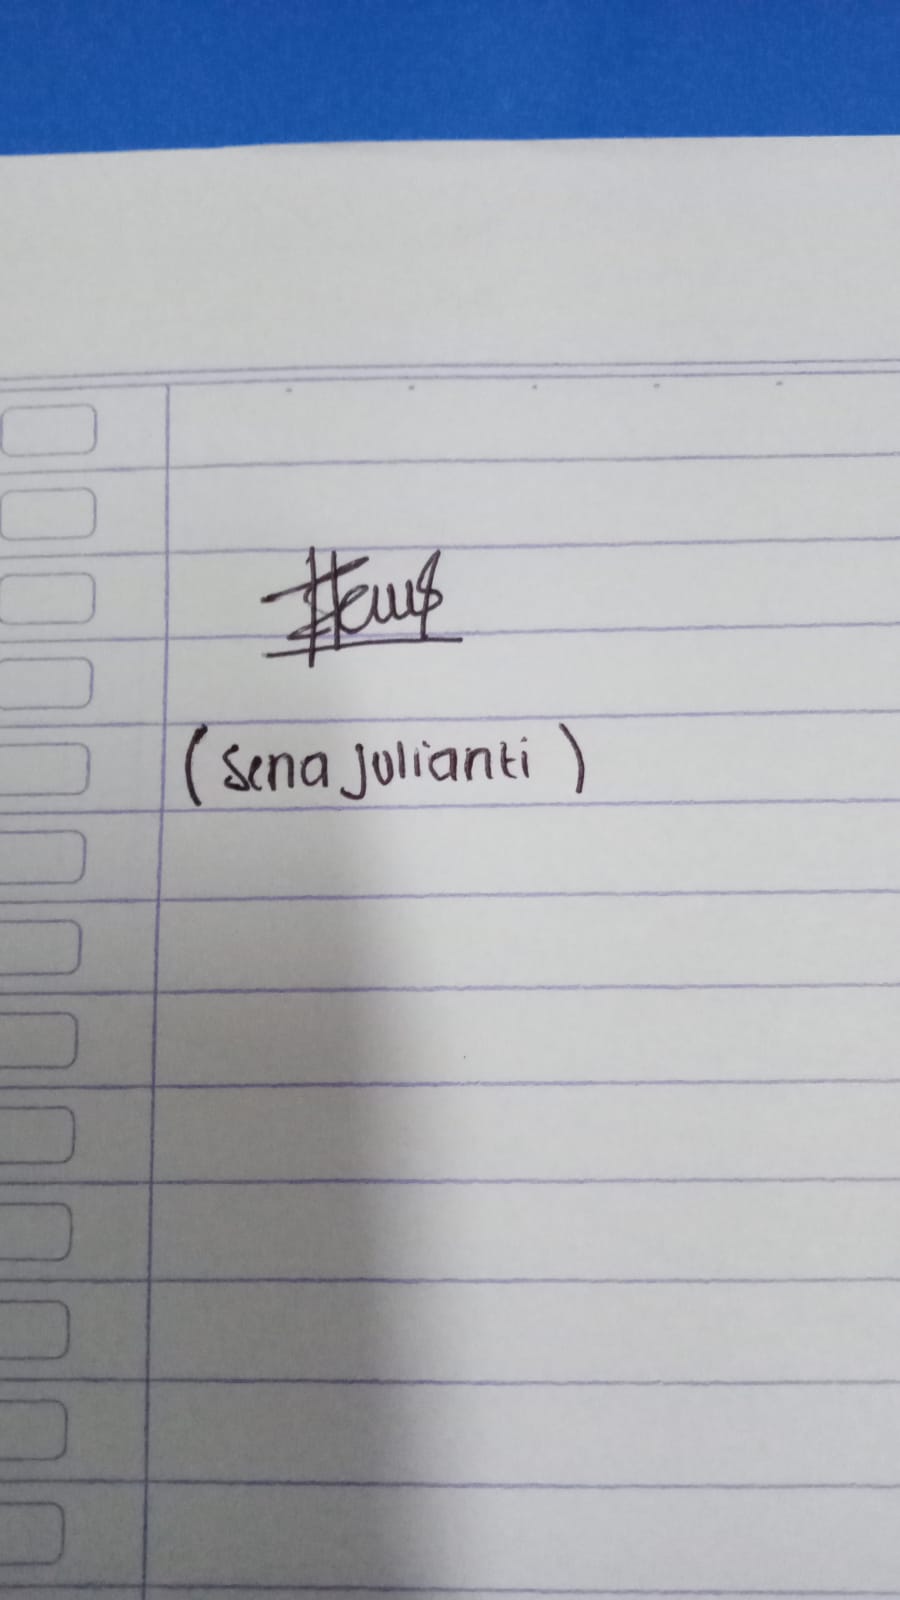 (Sena Julianti)